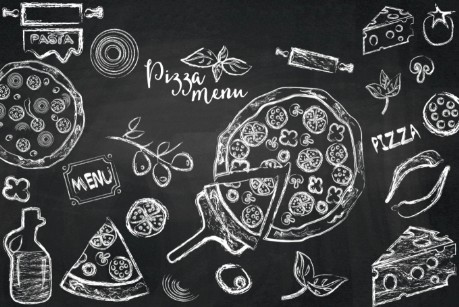 PASTA
Pizza
menu
PIZZA
MENU